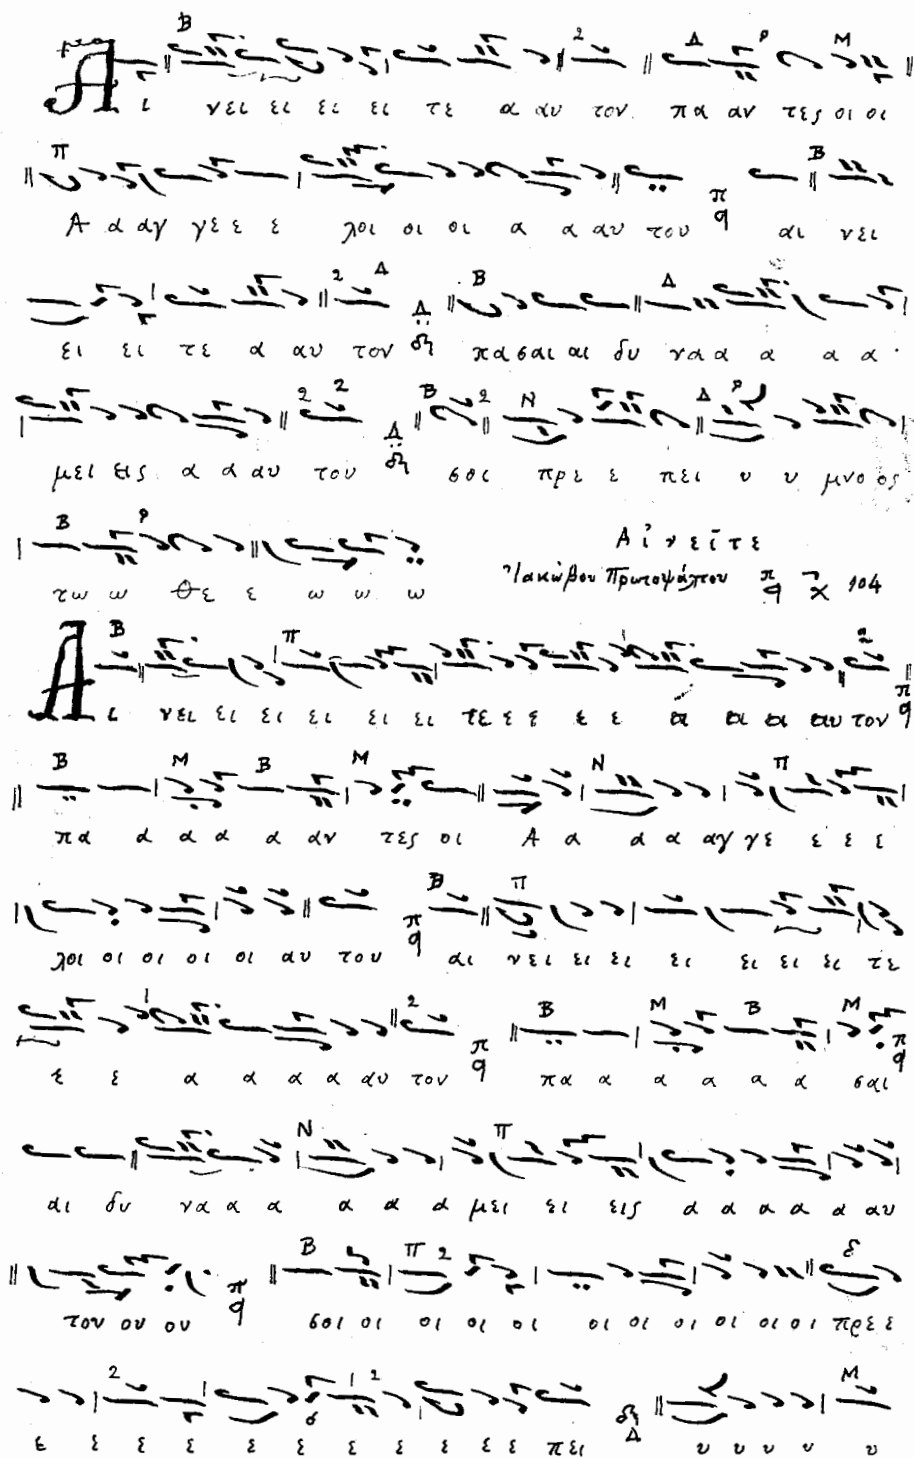 Α ι νει ει ει ει τε α αυ τον πα αν τες οι οι
Α α αγ γε ε ε λοι οι οι α α αυ του π q αι νει
ει ει τε α αυ τον Δ δι πα σαι αι δυ να α α α α
μει εις α α αυ του Δ δι σοι πρε ε πει υ υ μνο ος
τω ω Θε ε ω ω ω
Αἰνεῖτε
Ἰακώβου Πρωτοψάλτου π q 904
Α ι νει ει ει ει ει ει τε ε ε ε ε αυ τον π q
πα α α α α αν τες οι Α α α α αγ γε ε ε ε
λοι οι οι οι οι αυ του π q αι νει ει ει ει ει ει ει τε
ε ε α α α α αυ τον π q πα α α α α α σαι π q
αι δυ να α α α α α μει ει εις α α α α α αυ
του ου ου π q σοι οι οι οι οι οι οι οι οι οι οι πρε ε
ε ε ε ε ε ε ε ε ε ε ε πει δι Δ υ υ υ υ υ